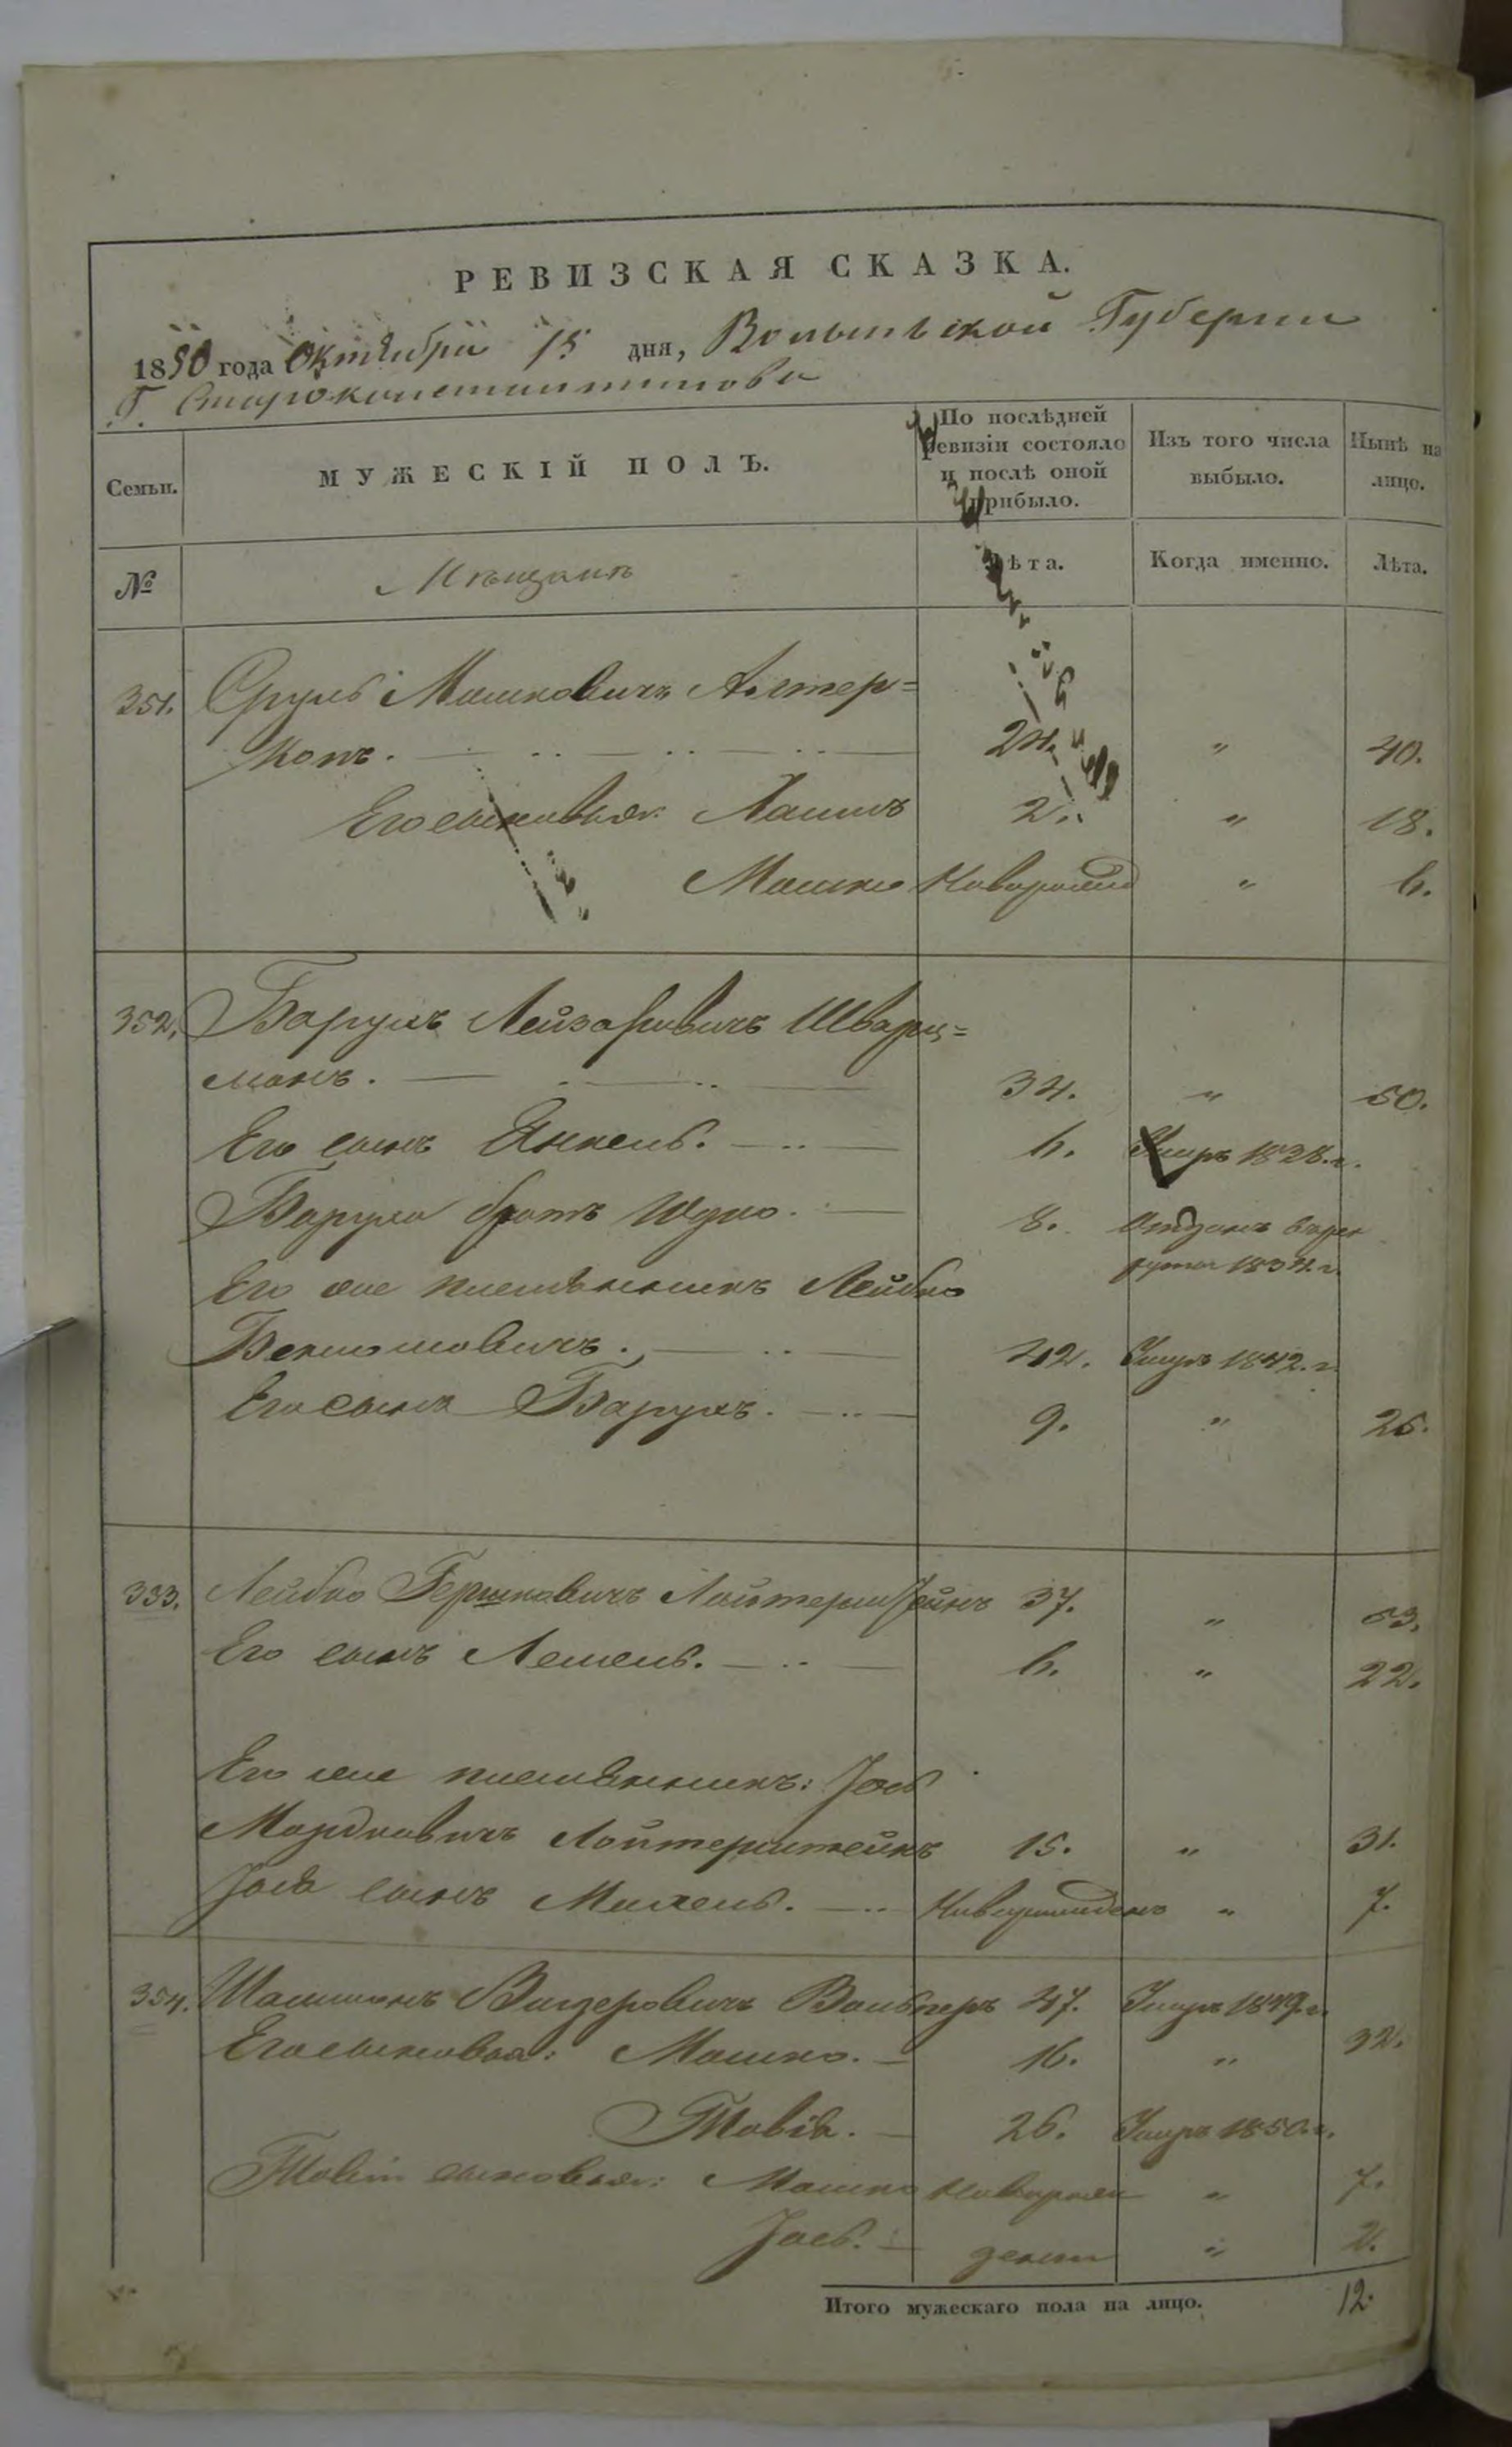 РЕВИЗСКАЯ СКАЗКА.
1850 года Октября 15 дня, Волынской Губернии
Г. Староконстантинова
Семьи. МУЖЕСКІЙ ПОЛЪ. По послѣдней ревизіи состояло и послѣ оной прибыло. Изъ того числа выбыло. Нынѣ на лицо.
№ Мѣщанѣ Лѣта. Когда именно. Лѣта.
351. Сруль Мошковичъ Алтер=
24. " 40.
Его сыновья: 2. " 18.
Мошко Новорожд " 6.
352. Барухъ Лейзаровичъ Шварц=
манъ. 34. " 50.
Его сынъ Янкель. 6. Умръ 1838.г.
Баруха братъ Юдко. 8. Отданъ въ рек
руты 1834.г.
Его же племянникъ Лейбко
Беніоминовичъ. 42. Умръ 1842.г.
Его сынъ Барухъ. 9. " 25.
353. Лейбко Гершковичъ Лойтерштейнъ 37. " 53.
Его сынъ Лемель. 6. " 22.
Его же племянникъ: Іось
Мордковичъ Лойтерштейнъ 15. " 31.
Іося сынъ Михель. Новорожденъ " 7.
354. Шлиомъ 47. Умръ 1849.г.
Его сыновья: Мошко. 16. " 32.
Товія. 26. Умръ 1850.г.
Товіи сыновья: Мошко новорож " 7.
Іось. дены " 2.
Итого мужескаго пола на лицо. 12.